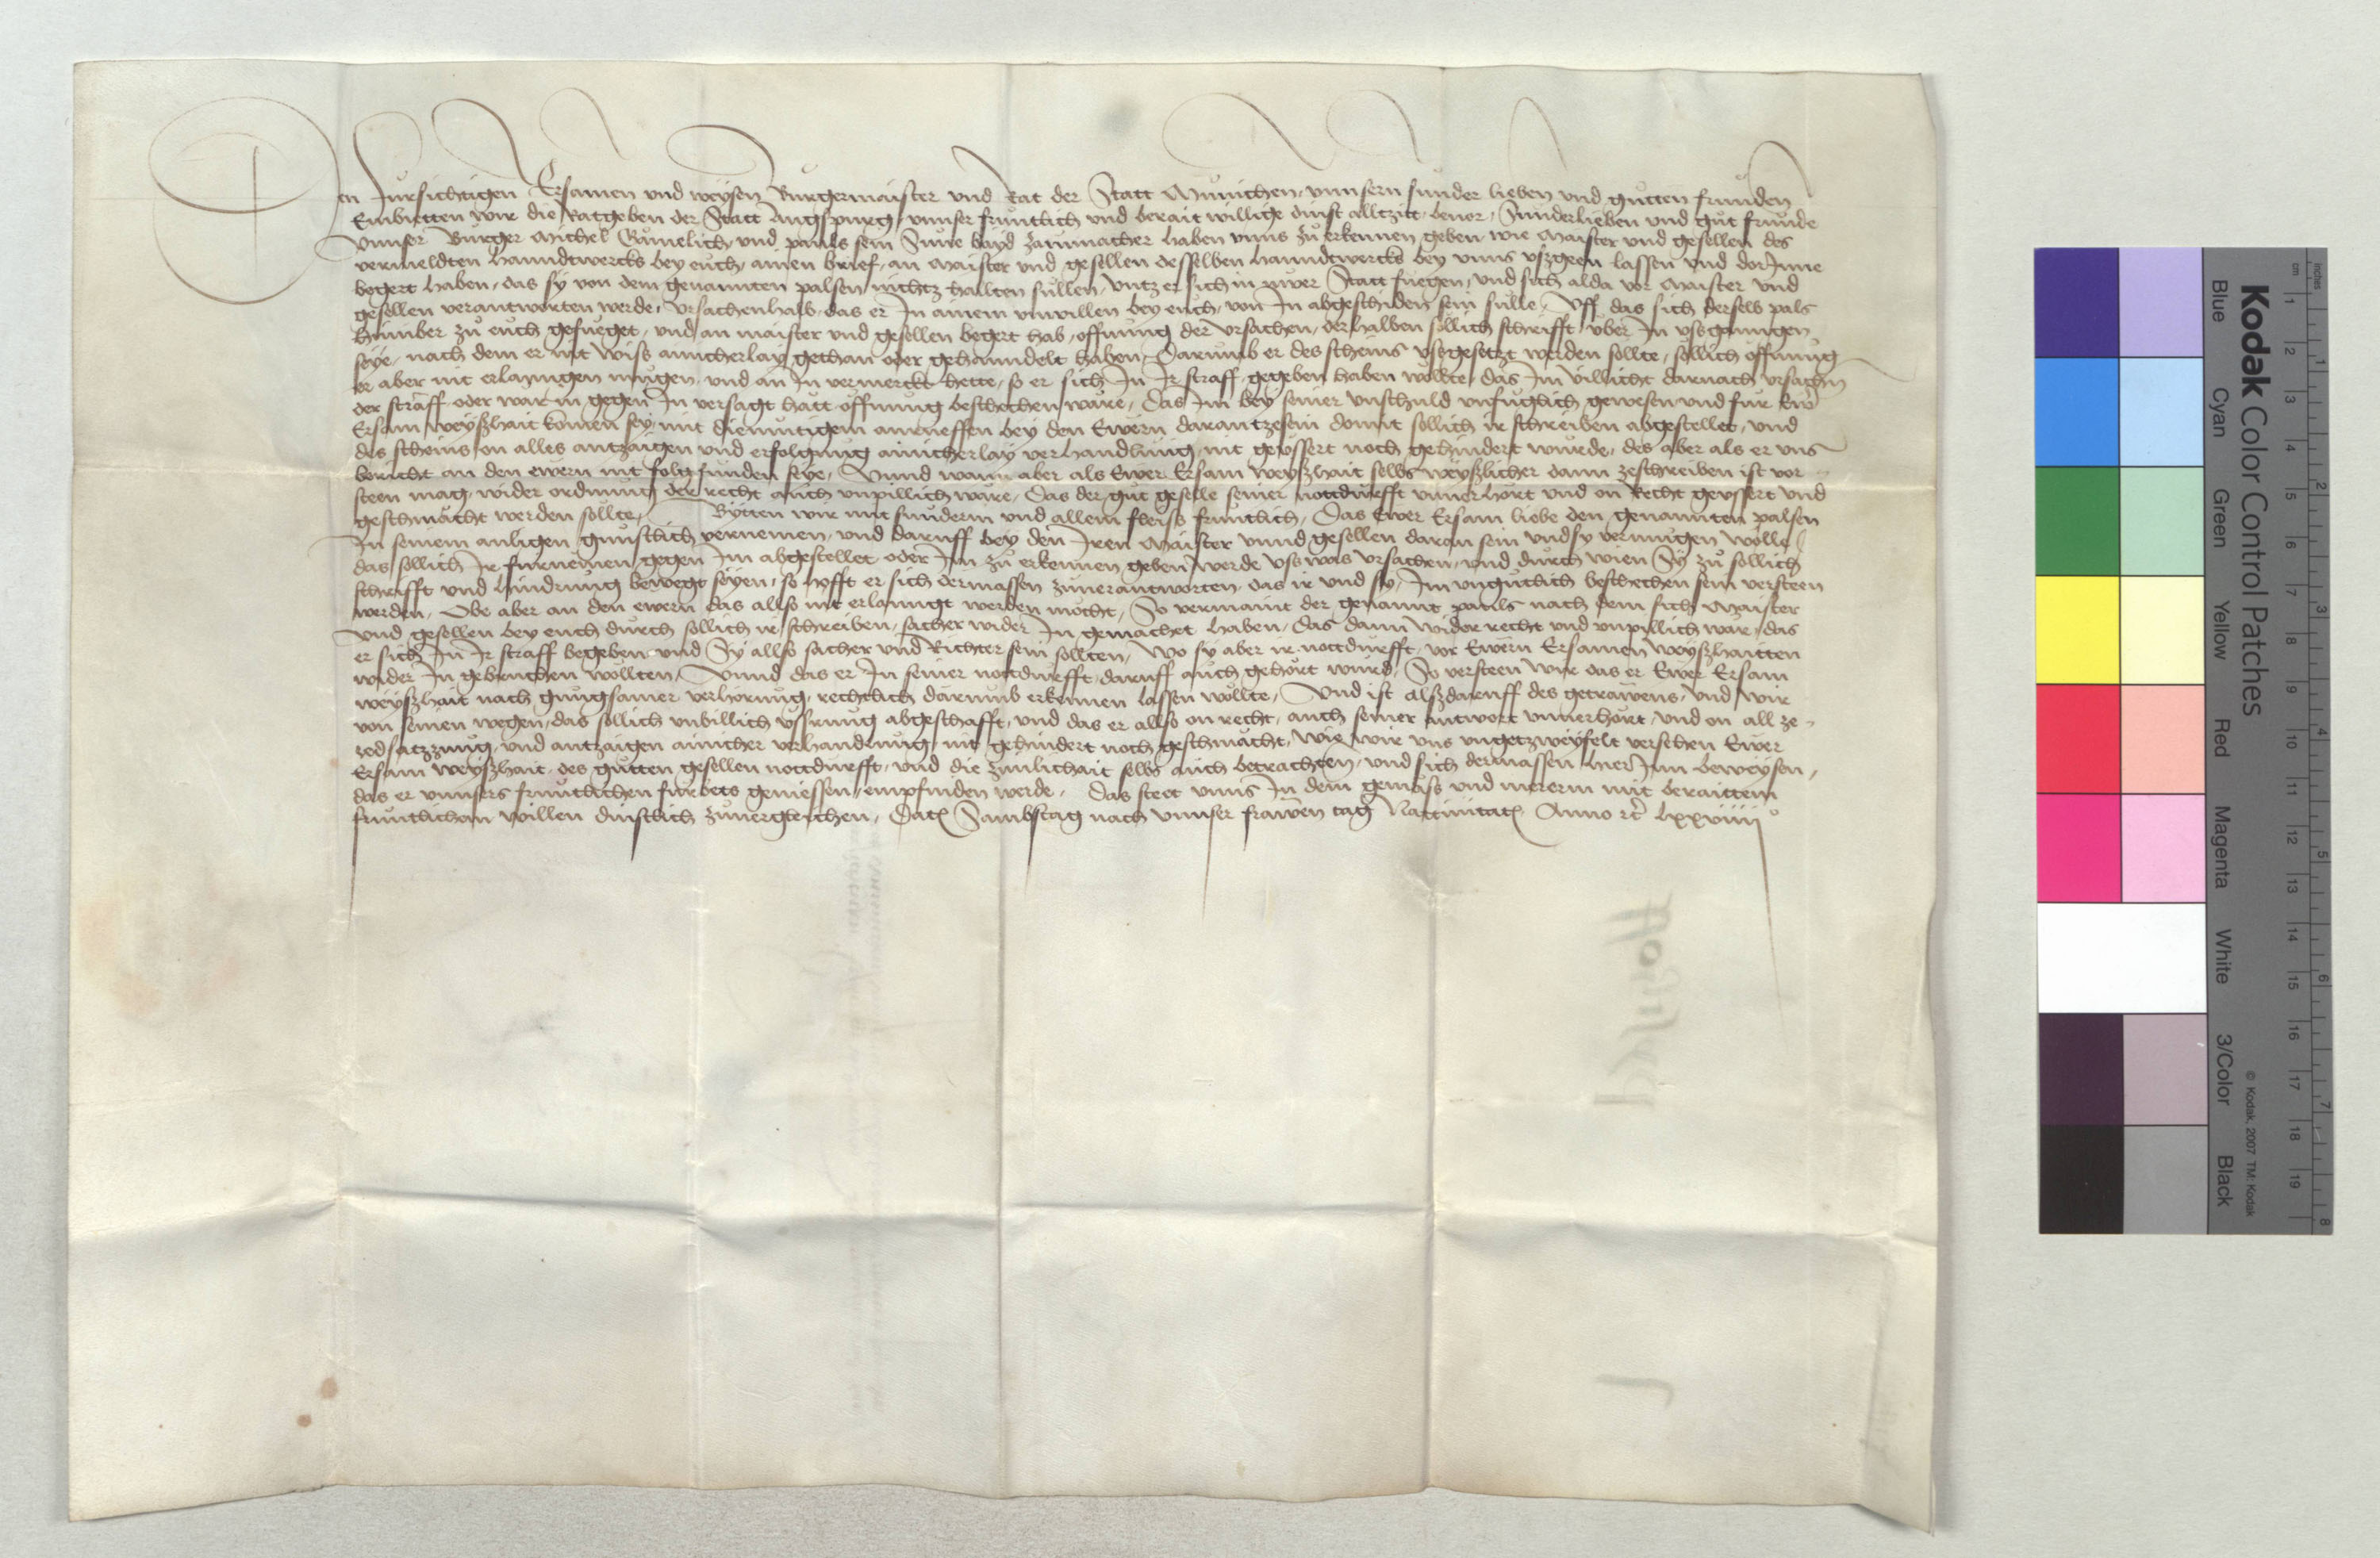 Den Fursichtigen Ersamen und weÿsen Burgermaister und Rat der Statt Mŭnichen, unnsern sunder lieben und gůtten frunden
Embietten wir die Ratgeben der Statt Augspurg, unnser fruntlich und berait willige dinst alltzitt bevor, Sunderlieben und gůt frunde
Unnser Burger Michel und pauls sein Sune bayd zammacher haben unns zů erkennen geben wie Maister und gesellen des
vermeldten hanndtwercks bey euch, ainen brief, an Maister und gesellen desselben hanndtwercks bey unns uszgeen lassen und dorInne
begert haben, das sÿ von dem genannten palsen nichtz hallten sullen, untz er sich in ewer Statt fuegen, und sich alda vor Maister und
gesellen verantwurten werde, Ursachenhalb, das er In ainem unwillen bey euch, von In abgeschiden sein sulle, Uff das sich derselb pals
hinuber zů euch gefueget, und an maister und gesellen begert hab, offnung der ursachen, derhalben sollich schrifft uber In ussganngen
seÿe, nach dem er nit wiss ainicherlaÿ gethan oder gehanndelt haben, Darumb er des scheins ussgesetzt werden sollte, sollich offnung
er aber nit erlanngen mugen, und an In vermerckt hette, so er sich In Ir straff gegeben haben wollte, das Im villicht darnach ursachen
der straff oder warin gegen In versagt hatt offnung beschechen ware, Das Im bey seiner unschuld unfuglich gewesen und fur Ewr
Ersam weÿszhait komen seÿ, mit diemutigem anrueffen bey den Ewern darantzesein domit sollich ir schreiben abgestellet, und
des scheins on alles antzaigen und erfolgung ainicherlaÿ verhandlung, nit geussert noch gehindert wurde, des aber als er uns
bericht an den ewern nit folg funden seye, Unnd wann aber als Ewer Ersam weÿszhait selbs weÿszlicher dann zeschreiben ist vor
steen mag, wider ordnung der recht auch unpillich ware, Das der gůt geselle seiner nottdurfft unnerhort und on Recht geussert und
geschmächt werden sollte, Bÿtten wir mit sunderm und allem fleiss fruntlich, Das Ewer Ersam liebe den genannten palsen
In seinem anligen gunstlich vernemen, und daruff bey den Iren Maister unnd gesellen daran sein und sy vermugen wölle
das sollich Ir furnemen gegen Im abgestellet oder Im zů erkennen geben werde uss was ursachen, und durch wien Sÿ zů sollich
schrifft und hindrung bewegt seÿen, so hofft er sich dermassen zuverantworten, das ir und sy, Im unguttlich beschechen sein versteen
werden, Obe aber an den ewern das allso nit erlanngt werden möcht, So vermaint der genannt pauls nach dem sich Maister
und gesellen bey euch durch sollich ir schreiben, sacher wider In gemachet haben, das dann wider recht und unpillich wär, das
er sich In Ir straff begeben und Sÿ allso sacher und Richter sein sollten, Wo sÿ aber ir nottdurfft, vor Ewern Ersamen weÿszhaitten
wider In gebruchen wollten, Unnd das er In seiner nottdurfft, daruff auch gehört wurd, So versteen wir das er Ewer Ersam
weÿszhait nach gnugsamer verhorung, rechtlich darumb erkennen lassen wollte, Und ist alszdaruff des getrawens, und wir
von seinen wegen, das sollich unbillich ussrung abgeschafft, und das er allso on recht, auch seiner antwort unnerhört, und on all ze
redsatzzung, und antzaigen ainicher verhandlung nit gehindert noch geschmächt, Wie wir uns ungetzweÿfelt versehen Ewer
Ersam weÿszhait, des gůtten gesellen nottdurfft, und die zimlichait selbs auch betrachten, und sich dermassen hierInn beweÿsen,
das er unnsers fruntlichen furbets geniessen, empfinden werde, Das steet unns In dem gemäss und mererm mit beraittem
fruntlichen willen dinstlich zuvergleichen, Datz Sambstag nach unnser frawen tag Nattivitatz Anno rc lxxviiii°